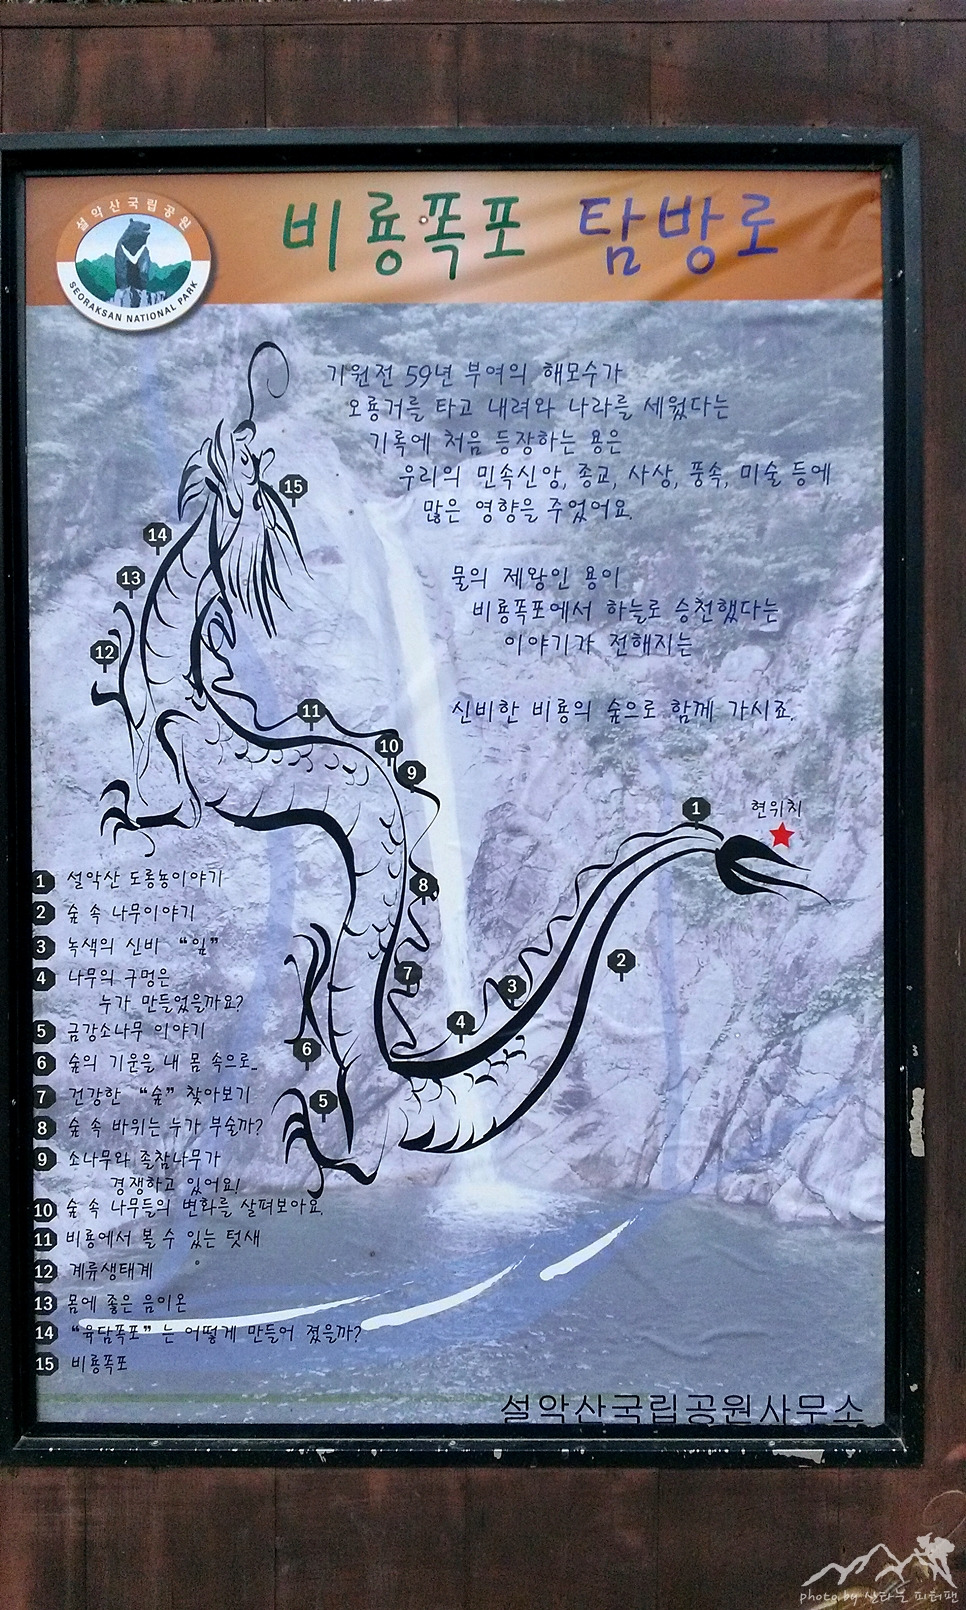 설악산국립공원
SEORAKSAN NATIONAL PARK
비룡폭포 탐방로
기원전 59년 부여의 해모수가
오룡거를 타고 내려와 나라를 세웠다는
기록에 처음 등장하는 용은
우리의 민속신앙, 종교, 사상, 풍속, 미술 등에
많은 영향을 주었어요.
물의 제왕인 용이
비룡폭포에서 하늘로 승천했다는
이야기가 전해지는
신비한 비룡의 숲으로 함께 가시죠.
15
14
13
12
11
10
9
1
현위치
8
2
7
3
4
6
5
1 설악산 도롱뇽이야기
2 숲 속 나무이야기
3 녹색의 신비 “잎”
4 나무의 구멍은
누가 만들었을까요?
5 금강소나무 이야기
6 숲의 기운을 내 몸 속으로...
7 건강한 “숲” 찾아보기
8 숲 속 바위는 누가 부술까?
9 소나무와 졸참나무가
경쟁하고 있어요!
10 숲 속 나무들의 변화를 살펴보아요.
11 비룡에서 볼 수 있는 텃새
12 계류생태계
13 몸에 좋은 음이온
14 “육담폭포” 는 어떻게 만들어 졌을까?
15 비룡폭포
설악산국립공원사무소
photo by 산타불 피터팬